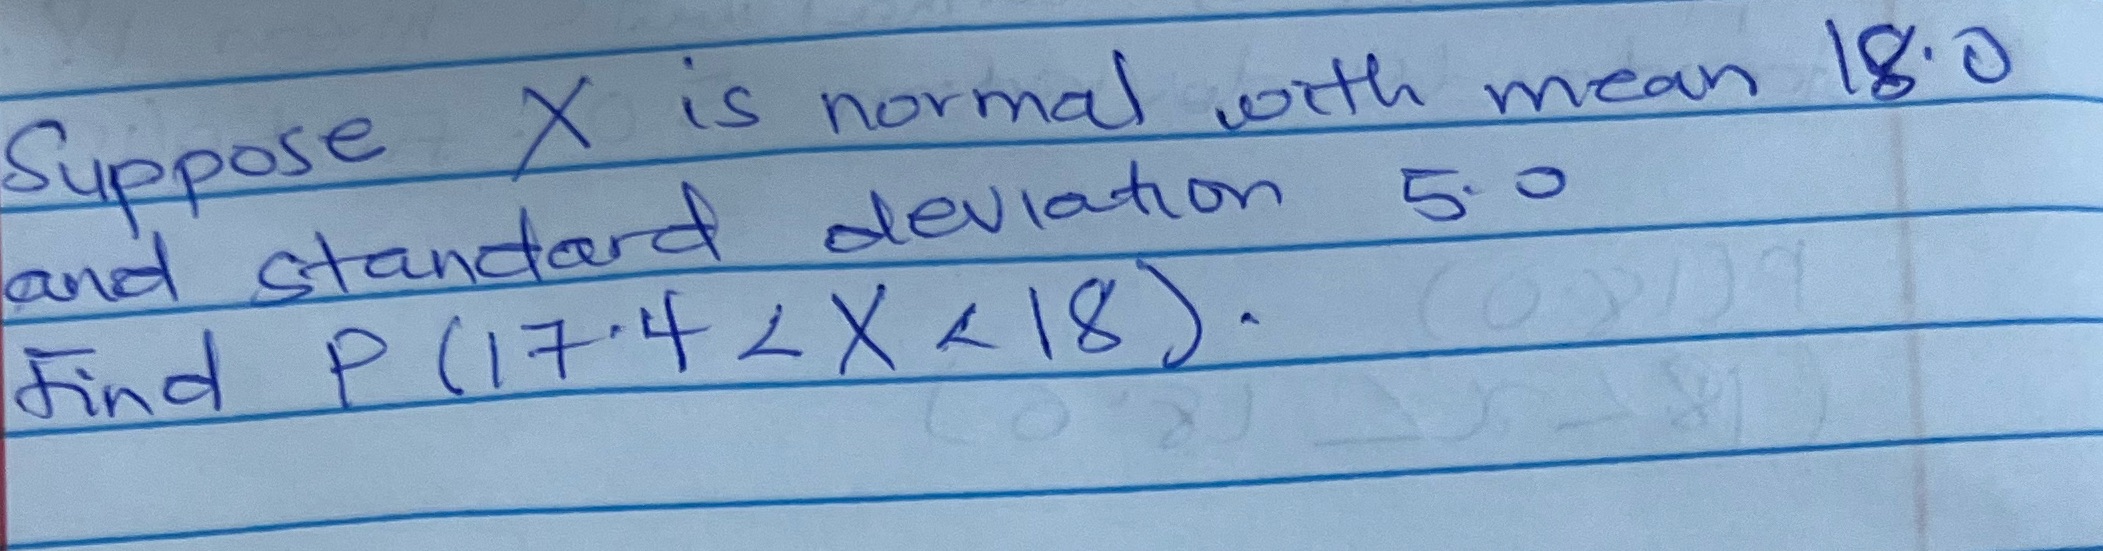 Suppose X is normal with mean 18.0
and standard deviation 5.0
Find P(17.4 < X < 18).